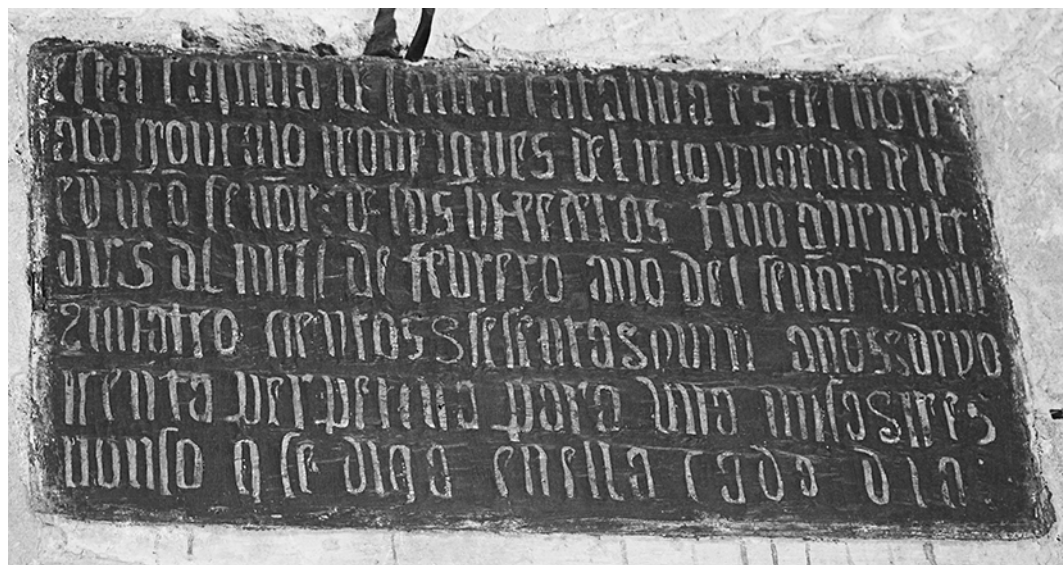 esta capilla de santa catalina es del honr
ado gonçalo rodrigues del rio guarda del r
ey nrõ señor e de sus herederos fino a veynte
dias del mes de febrero año del señor de mill
e quatro cientos e sesenta e años e dexo
renta perpetua para una misa
q se diga en ella cada dia